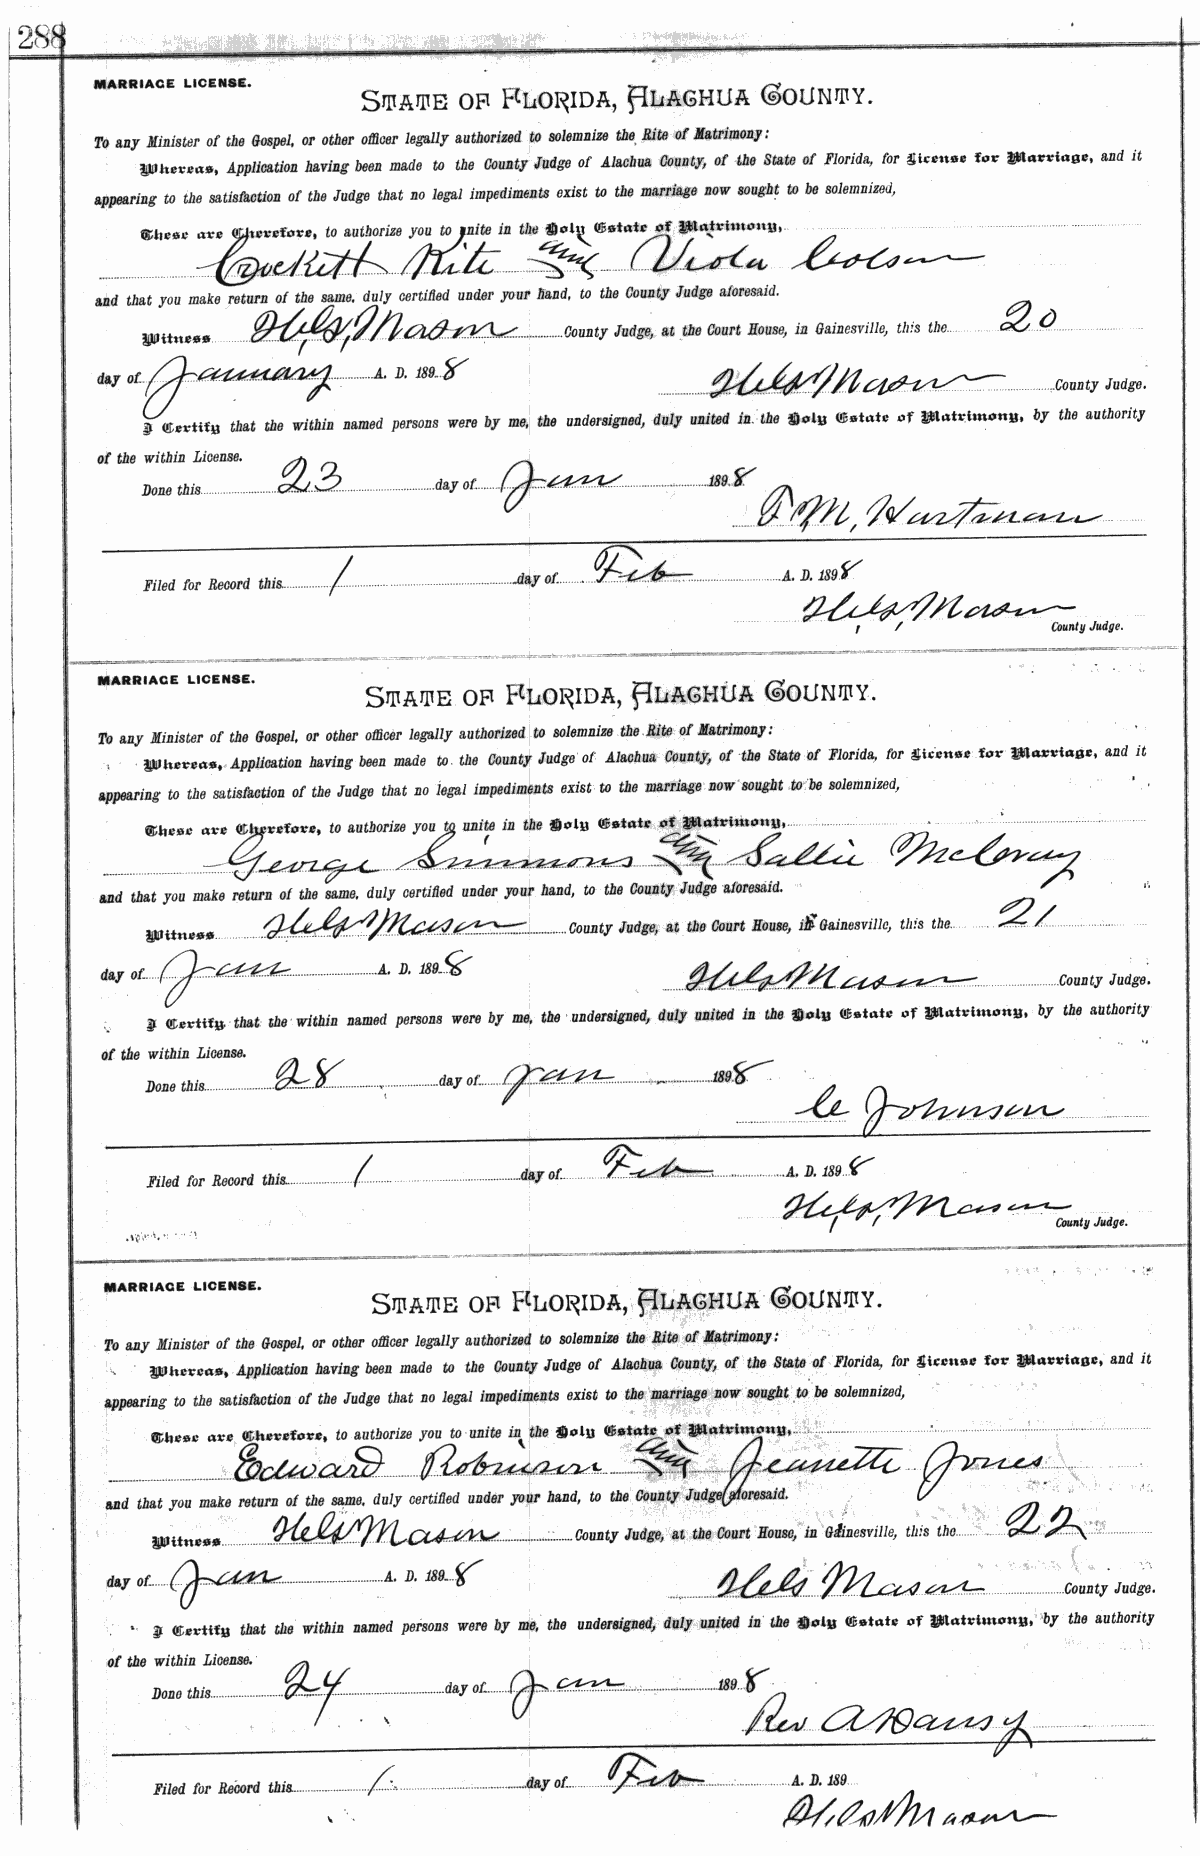 288
MARRIAGE LICENSE.
STATE OF FLORIDA, ALACHUA COUNTY.
To any Minister of the Gospel, or other officer legally authorized to solemnize the Rite of Matrimony:
Whereas, Application having been made to the County Judge of Alachua County, of the State of Florida, for License for Marriage, and it
appearing to the satisfaction of the Judge that no legal impediments exist to the marriage now sought to be solemnized,
These are Therefore, to authorize you to unite in the Holy Estate of Matrimony,
Crockett Kite and Viola Colson
and that you make return of the same, duly certified under your hand, to the County Judge aforesaid.
Witness H.G. Mason County Judge, at the Court House, in Gainesville, this the 20
day of January A. D. 1898 H.G. Mason County Judge.
I Certify that the within named persons were by me, the undersigned, duly united in the Holy Estate of Matrimony, by the authority
of the within License.
Done this 23 day of Jan 1898
T.M. Hartman
Filed for Record this 1 day of Feb A. D. 1898
H.G. Mason
County Judge.
MARRIAGE LICENSE.
STATE OF FLORIDA, ALACHUA COUNTY.
To any Minister of the Gospel, or other officer legally authorized to solemnize the Rite of Matrimony:
Whereas, Application having been made to the County Judge of Alachua County, of the State of Florida, for License for Marriage, and it
appearing to the satisfaction of the Judge that no legal impediments exist to the marriage now sought to be solemnized,
These are Therefore, to authorize you to unite in the Holy Estate of Matrimony,
George Simmons and Sallie McCray
and that you make return of the same, duly certified under your hand, to the County Judge aforesaid.
Witness H.G. Mason County Judge, at the Court House, in Gainesville, this the 21
day of Jan A. D. 1898 H.G. Mason County Judge.
I Certify that the within named persons were by me, the undersigned, duly united in the Holy Estate of Matrimony, by the authority
of the within License.
Done this 28 day of Jan 1898
C Johnson
Filed for Record this 1 day of Feb A. D. 1898
H.G. Mason
County Judge.
MARRIAGE LICENSE.
STATE OF FLORIDA, ALACHUA COUNTY.
To any Minister of the Gospel, or other officer legally authorized to solemnize the Rite of Matrimony:
Whereas, Application having been made to the County Judge of Alachua County, of the State of Florida, for License for Marriage, and it
appearing to the satisfaction of the Judge that no legal impediments exist to the marriage now sought to be solemnized,
These are Therefore, to authorize you to unite in the Holy Estate of Matrimony,
Edward Robinson and Jeanette Jones
and that you make return of the same, duly certified under your hand, to the County Judge aforesaid.
Witness H.G. Mason County Judge, at the Court House, in Gainesville, this the 22
day of Jan A. D. 1898 H.G. Mason County Judge.
I Certify that the within named persons were by me, the undersigned, duly united in the Holy Estate of Matrimony, by the authority
of the within License.
Done this 24 day of Jan 1898
Rev A Dansy
Filed for Record this 1 day of Feb A. D. 189
H.G. Mason